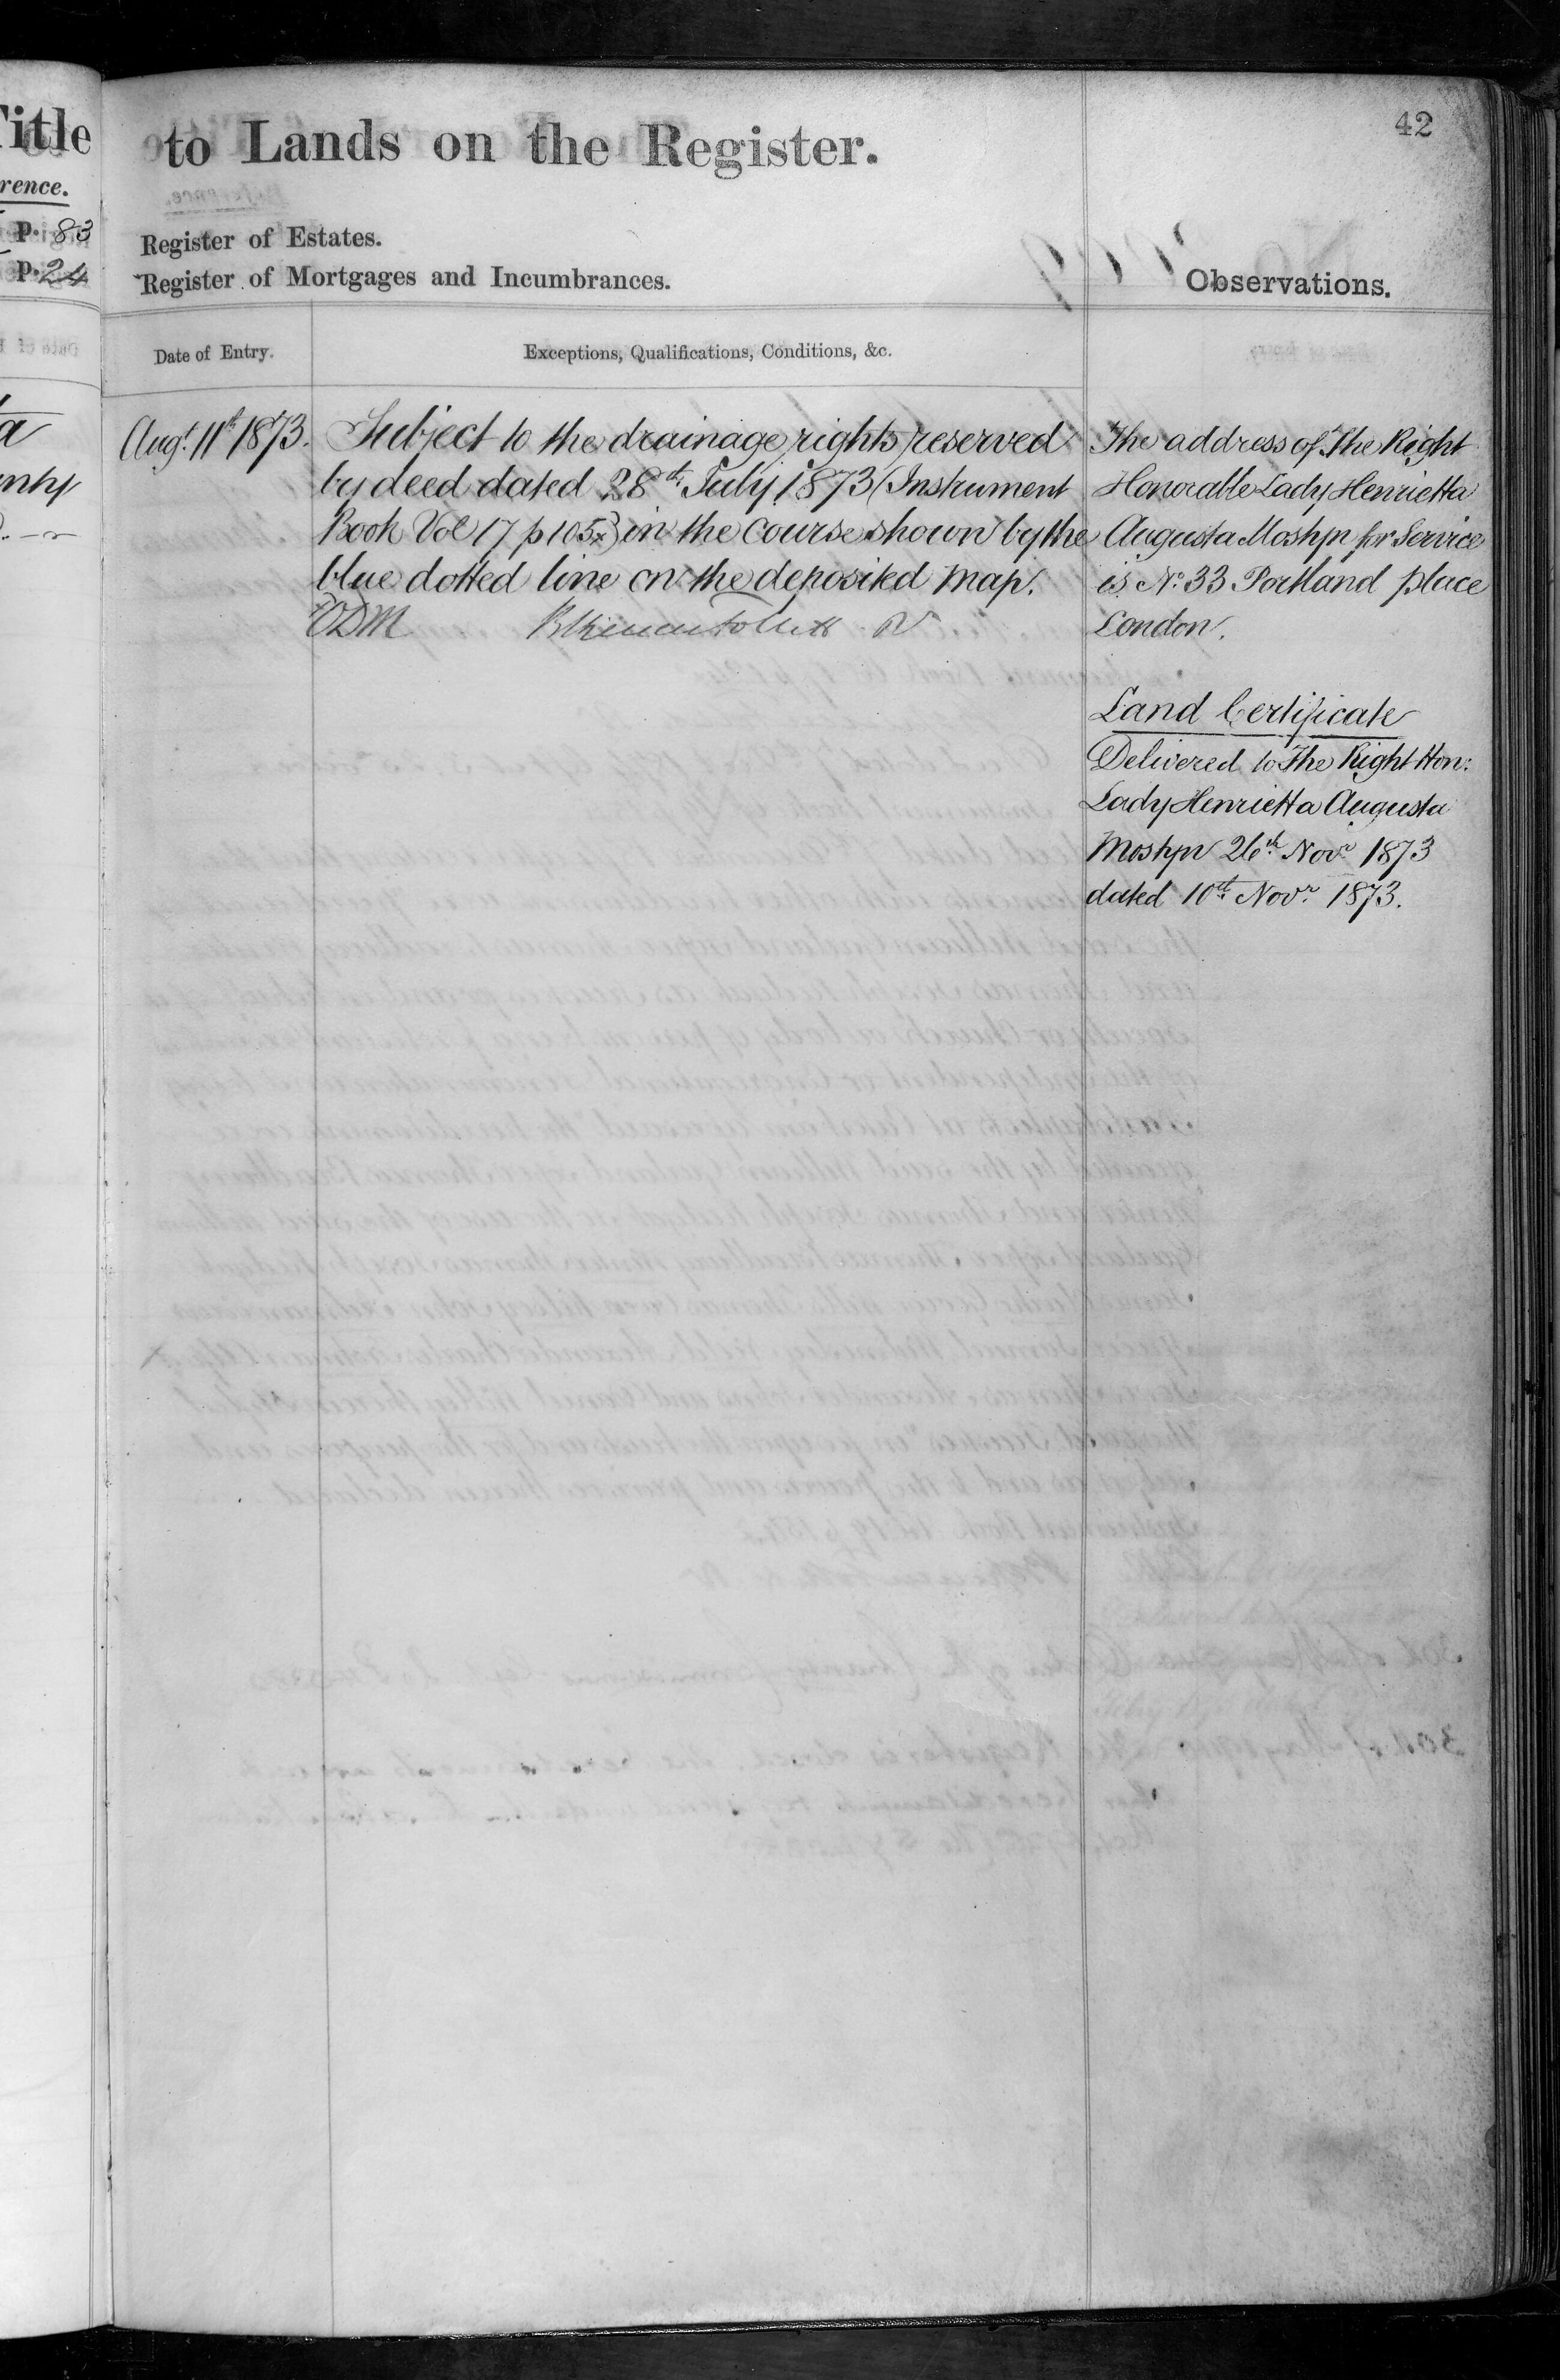 42
Title to Lands on the Register.
rence.
p. 83
p. 24
Register of Estates.
Register of Mortgages and Incumbrances.
Observations.
Date of Entry.
Exceptions, Qualifications, Conditions, &c.
Augt. 11th 1873.
Subject to the drainage rights reserved
by deed dated 28th July 1873 (Instrument
Book Vol 17 p 105) in the course shown by the
blue dotted line on the deposited Map.
The address of The Right
Honorable Lady Henrietta
Augusta Mostyn for Service
is No. 33 Portland place
London.
Land Certificate
Delivered to The Right Hon:
Lady Henrietta Augusta
Mostyn 26th Novr 1873
dated 10th Novr 1873.